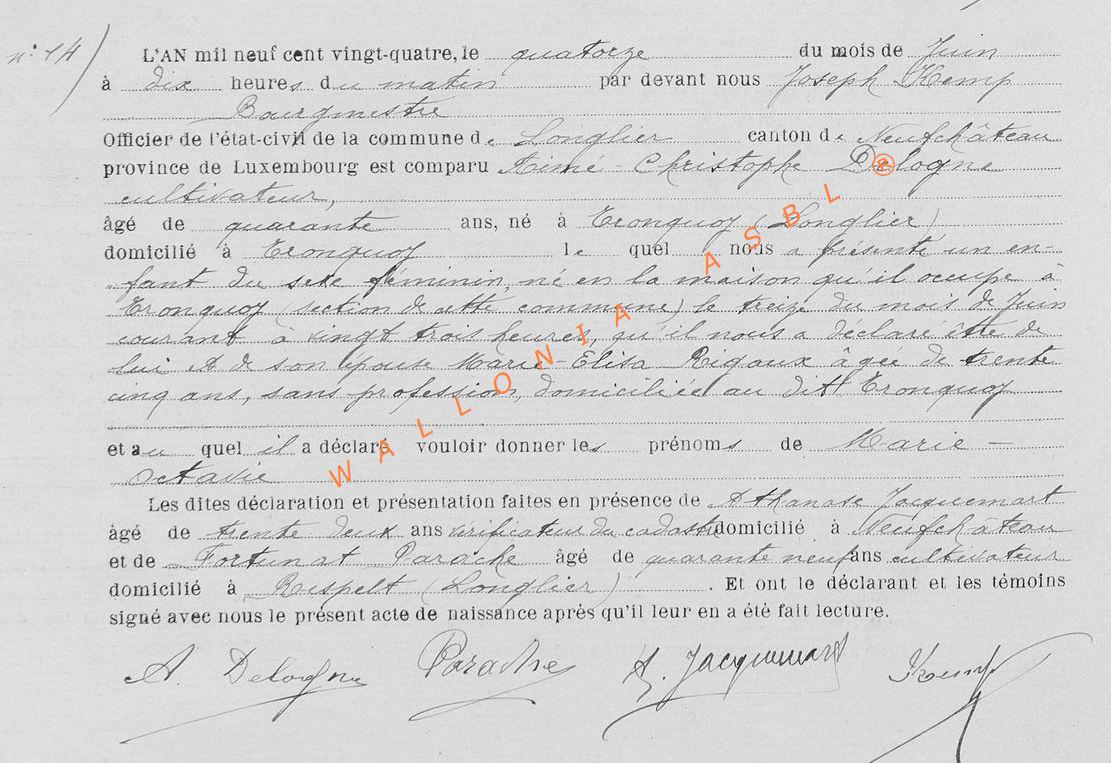 n° 14)
L'AN mil neuf cent vingt-quatre, le quatorze du mois de Juin
à dix heures du matin par devant nous Joseph Kemp
Bourgmestre
Officier de l'état-civil de la commune de Longlier canton de Neufchâteau
province de Luxembourg est comparu Aimé-Christophe Delogne
cultivateur,
âgé de quarante ans, né à Tronquoy (Longlier)
domicilié à Tronquoy le quel nous a présenté un en-
fant du sexe féminin, né en la maison qu'il occupe à
Tronquoy section de cette commune) le treize du mois de Juin
courant à vingt trois heures, qu'il nous a déclaré être de
lui et de son épouse Marie-Elisa Rigaux âgée de trente
cinq ans, sans profession, domiciliée au dit Tronquoy
et au quel il a déclaré vouloir donner les prénoms de Marie-
Octavie
Les dites déclaration et présentation faites en présence de Athanase Jacquemart
âgé de trente deux ans vérificateur du cadastre domicilié à Neufchateau
et de Fortunat Parache âgé de quarante neuf ans cultivateur
domicilié à Respelt (Longlier). Et ont le déclarant et les témoins
signé avec nous le présent acte de naissance après qu'il leur en a été fait lecture.
A. Delogne Parache A. Jacquemart Kemp
WALLONIA ASBL ®